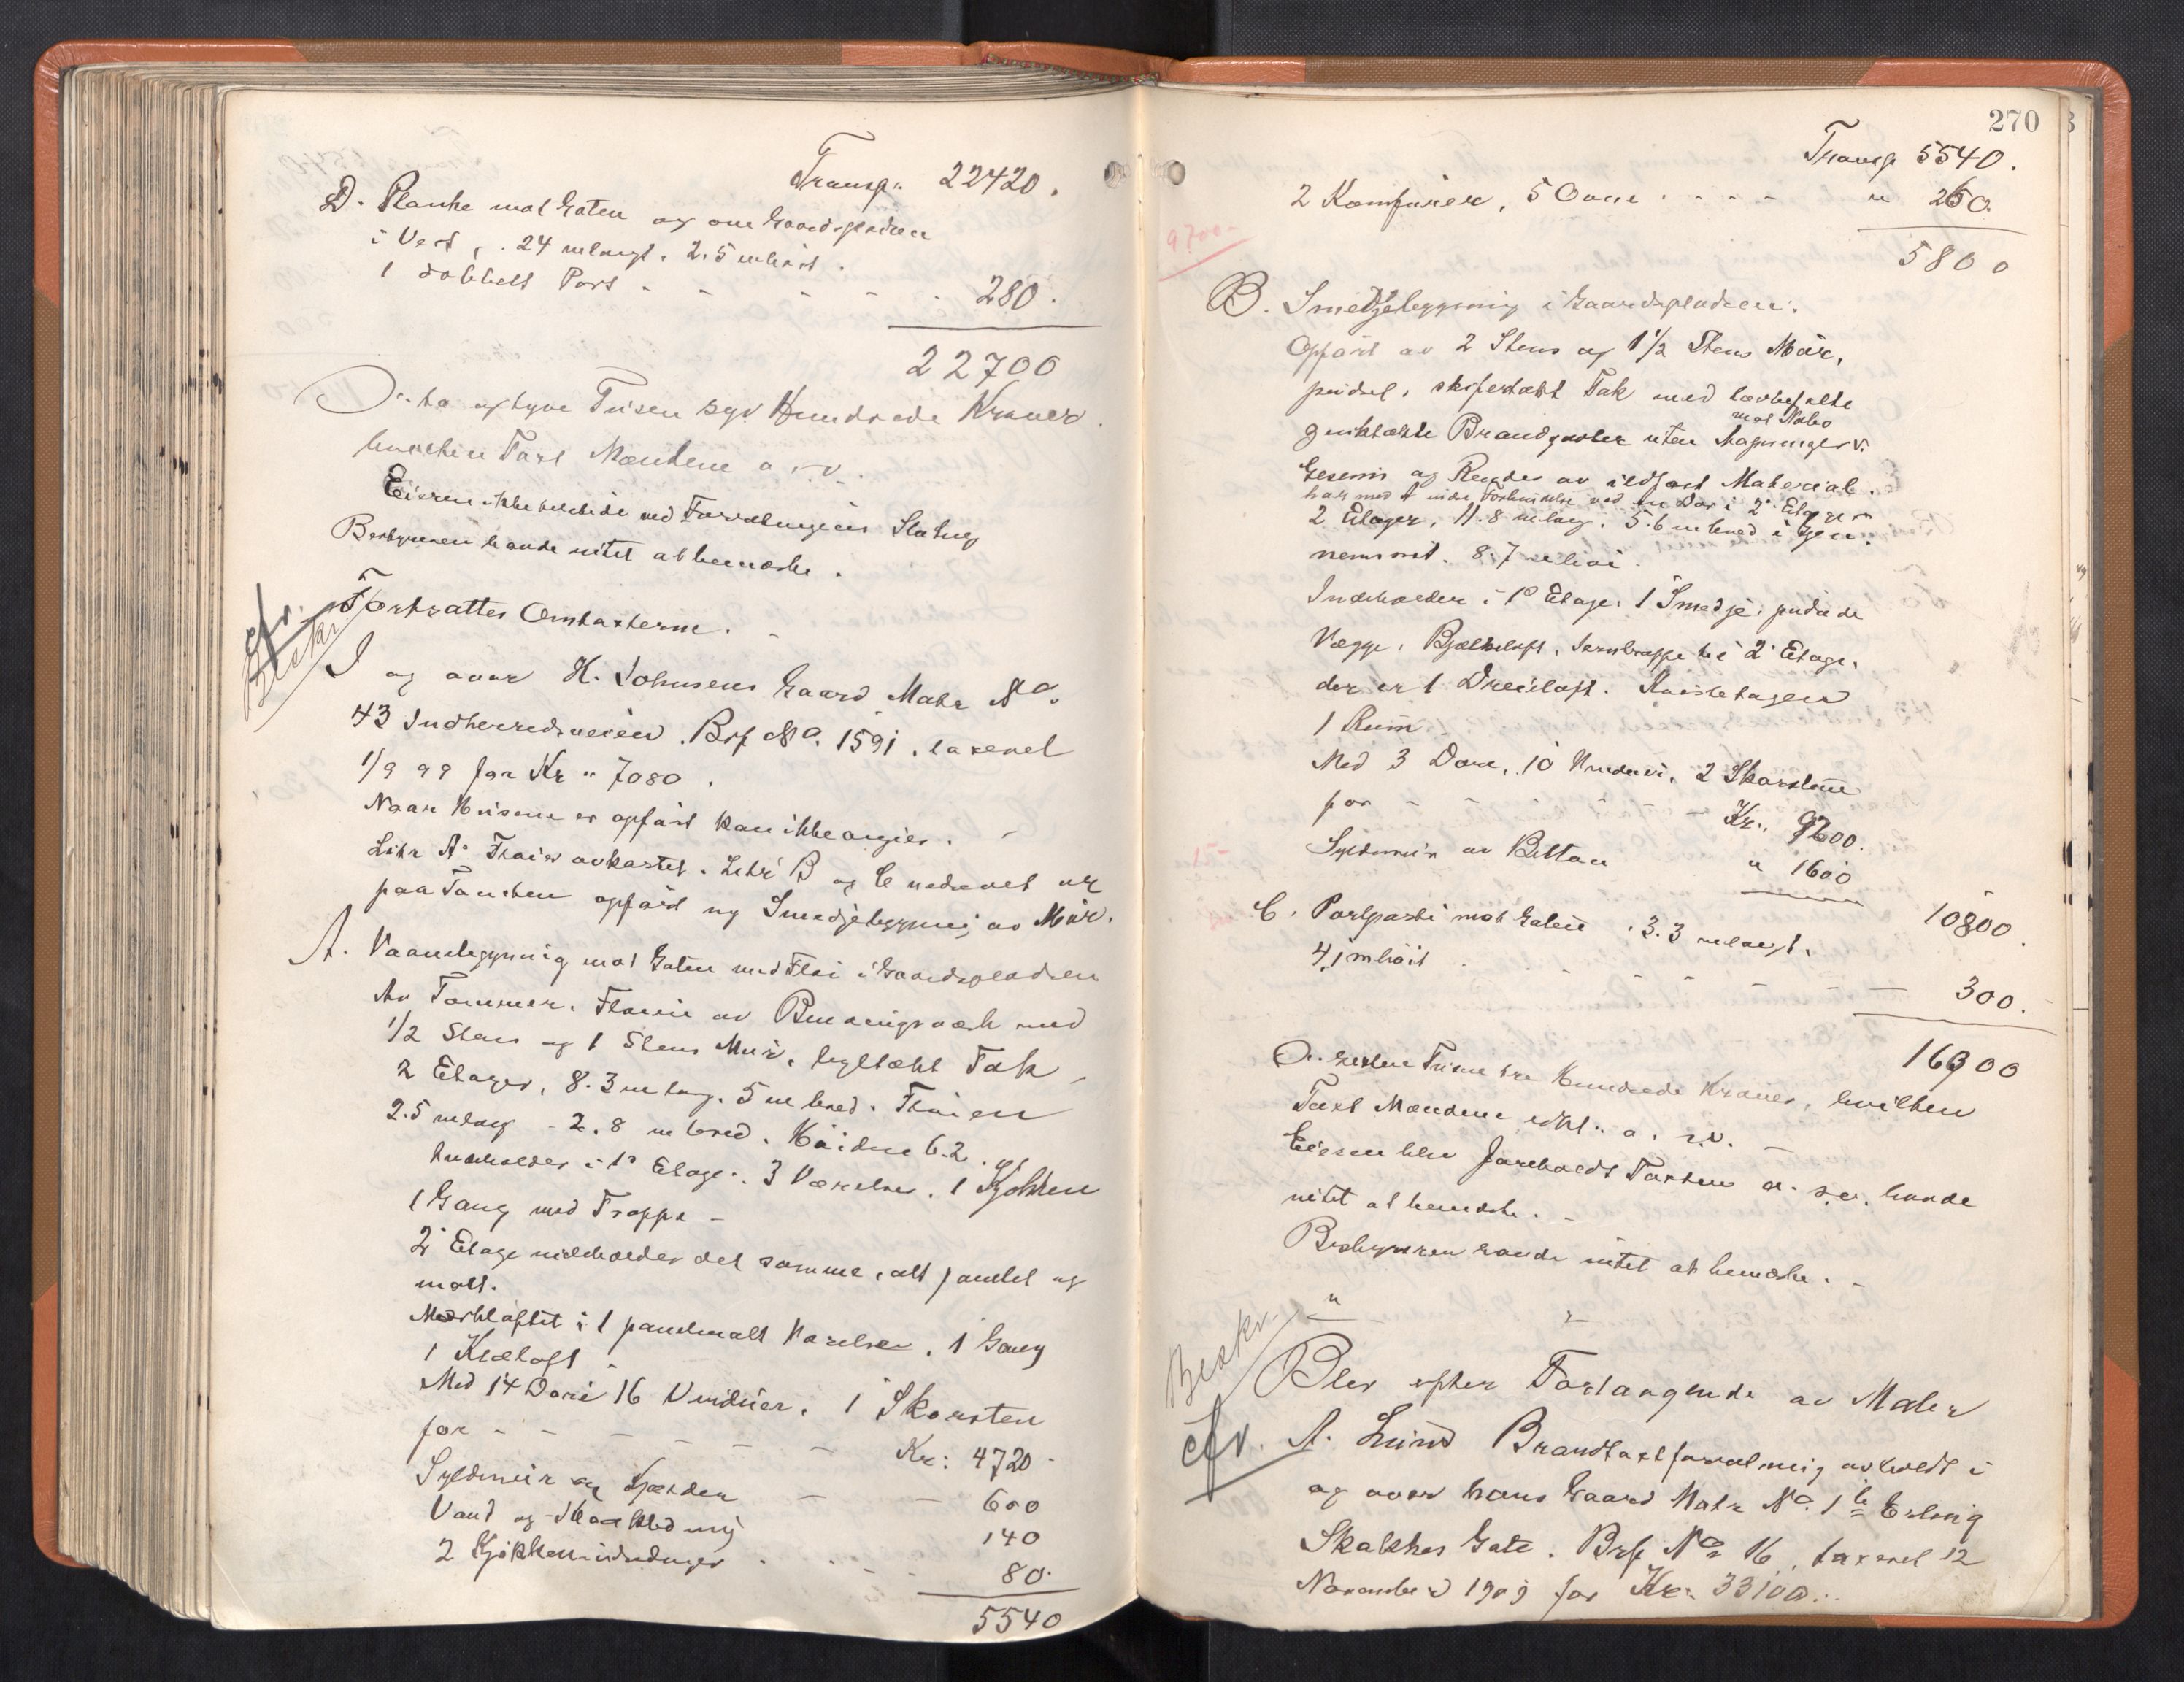 Transp. 22420.
D. Planke mot Gaten og om Gaardspladsen
i Vest, 24 m langt, 2.5 m høit.
1 dobbelt Port - - - - 280.
22700
Er to og tyve Tusen syv Hundrede Kroner
hvorhen Taxt Mændene o.s.v.
Eieren ikke tilstede ved Forretningens Slutning
Bestyreren havde intet at bemærke.
cfr. Fortsattes Omtaxterne.
Beskr.
I og over H. Johnsens Gaard Matr No.
43 Indherredsveien. Brf No. 1591. taxeret
1/9 99 for Kr " 7080.
Naar Husene er opført kan ikke angies.
Litr A. Fløien avkastet. Litr B og C nedrevet og
paa Tomten opført ny Smedjebygning av Mur.
A. Vaaningsbygning mot Gaten med Fløi i Gaardspladsen
Av Tømmer. Fløien av Bindingsværk med
1/2 Stens og 1 Stens Mur, tegltækt Tak
2 Etager, 8.3 m lang. 5 m bred. Fløien
2.5 m lang - 2.8 m bred. Høiden 6.2
Indeholder i 1ste Etage: 3 Værelser, 1 Kjøkken og
1 Gang med Trappe -
2' Etage indeholder det samme, alt panelet og
malt.
Mørkloftet i 1 panelmalt Værelse, 1 Gang
1 Klæloft
Med 14 Døre 16 Vinduer, 1 Skorsten
for - - - - - Kr: 4720
Syldmur og Kjælder - - 600
Vand og Kloakledning 140
2 Kjøkkenindredninger - - 80.
5540
270
Transp 5540.
2 Komfurer, 5 Ovne - - - " 260.
9700-
5800
B. Smedjebygning i Gaardspladsen.
Opført av 2 Stens og 1 1/2 Stens Mur,
pudset, skifertækt Tak med lovbefalte
mot Nabo
zinktækte Brandgavler uten Aapninger.
Gesims og Render av ildfast Material.
har med A indre Forbindelse ved en Dør i 2' Etage
2 Etager, 11.8 m lang, 5.6 m bred i Gjen-
nemsnit. 8.7 m høi.
Indeholder i 1ste Etage: 1 Smedje, pudsede
Vægge, Bjælkeloft, Jerntrappe til 2' Etage,
der er 1 Dreieloft. Kvistetagen
1 Rum
Med 3 Døre, 10 Vinduer, 2 Skorstene
for - - - - - Kr. 9200.
15-
Syldmur av Betton " 1600
10800.
C. Portparti mot Gaten, 3.3 m langt,
4,1 m høit - - - - - 300.
16900
Er sexten Tusen tre Hundrede Kroner, hvilken
Taxt Mændene erkl. o.s.v. -
Eieren blev foreholdt Taxten o.s.v. havde
intet at bemærke. -
Bestyreren havde intet at bemærke. -
Beskr.
Blev efter Forlangende av Maler
cfr. A. Lund Brandtaxtforretning avholdt i
og over hans Gaard Matr No. 1 b Erling
Skakkes Gate. Brf No 16, taxeret 12
November 1909 for Kr. 33100..